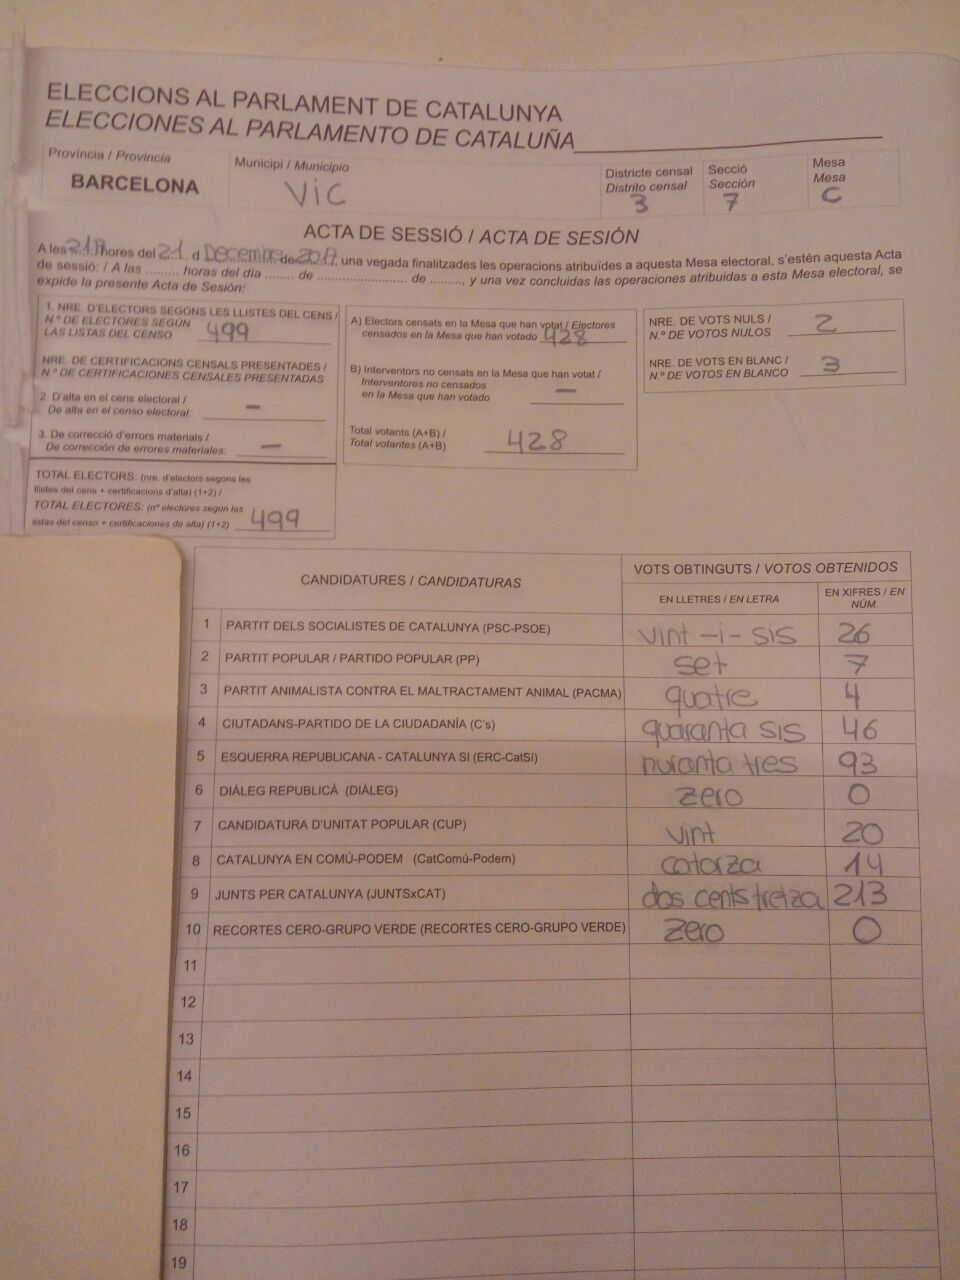 ELECCIONS AL PARLAMENT DE CATALUNYA
ELECCIONES AL PARLAMENTO DE CATALUÑA
Província / Provincia
BARCELONA
Municipi / Municipio
Vic
Districte censal
Distrito censal
3
Secció
Sección
7
Mesa
Mesa
C
ACTA DE SESSIÓ / ACTA DE SESIÓN
A les hores del 21 d Decembre de 2017, una vegada finalitzades les operacions atribuïdes a aquesta Mesa electoral, s'estén aquesta Acta
de sessió: / A las ......... horas del día ....... de ........................ de ........., y una vez concluidas las operaciones atribuidas a esta Mesa electoral, se
expide la presente Acta de Sesión:
1. NRE. D'ELECTORS SEGONS LES LLISTES DEL CENS /
N.º DE ELECTORES SEGÚN
LAS LISTAS DEL CENSO 499
NRE. DE CERTIFICACIONS CENSALS PRESENTADES /
N.º DE CERTIFICACIONES CENSALES PRESENTADAS
2. D'alta en el cens electoral /
De alta en el censo electoral: -
3. De correcció d'errors materials /
De corrección de errores materiales: -
TOTAL ELECTORS: (nre. d'electors segons les
llistes del cens + certificacions d'alta) (1+2) /
TOTAL ELECTORES: (nº electores según las
listas del censo + certificaciones de alta) (1+2) 499
A) Electors censats en la Mesa que han votat / Electores
censados en la Mesa que han votado 428
B) Interventors no censats en la Mesa que han votat /
Interventores no censados
en la Mesa que han votado -
Total votants (A+B) /
Total votantes (A+B) 428
NRE. DE VOTS NULS /
N.º DE VOTOS NULOS 2
NRE. DE VOTS EN BLANC /
N.º DE VOTOS EN BLANCO 3
CANDIDATURES / CANDIDATURAS
VOTS OBTINGUTS / VOTOS OBTENIDOS
EN LLETRES / EN LETRA
EN XIFRES / EN
NÚM.
1 PARTIT DELS SOCIALISTES DE CATALUNYA (PSC-PSOE) vint-i-sis 26
2 PARTIT POPULAR / PARTIDO POPULAR (PP) set 7
3 PARTIT ANIMALISTA CONTRA EL MALTRACTAMENT ANIMAL (PACMA) quatre 4
4 CIUTADANS-PARTIDO DE LA CIUDADANÍA (C's) quaranta sis 46
5 ESQUERRA REPUBLICANA - CATALUNYA SÍ (ERC-CatSí) nuranta tres 93
6 DIÀLEG REPUBLICÀ (DIÀLEG) zero 0
7 CANDIDATURA D'UNITAT POPULAR (CUP) vint 20
8 CATALUNYA EN COMÚ-PODEM (CatComú-Podem) catorza 14
9 JUNTS PER CATALUNYA (JUNTSxCAT) dos cents tretza 213
10 RECORTES CERO-GRUPO VERDE (RECORTES CERO-GRUPO VERDE) zero 0
11
12
13
14
15
16
17
18
19